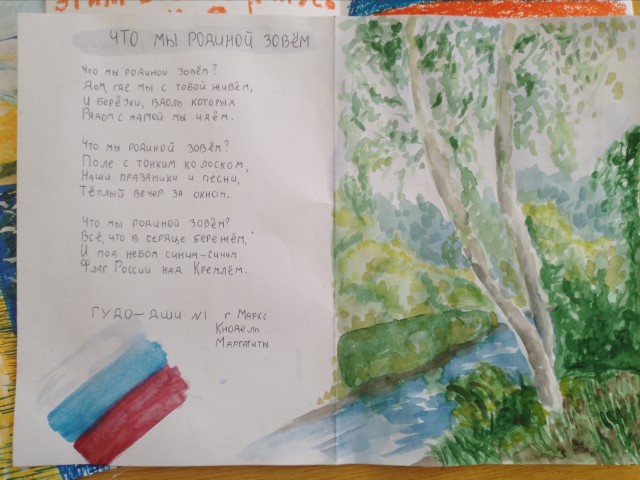 ЧТО МЫ РОДИНОЙ ЗОВЁМ
Что мы родиной зовём?
Дом, где мы с тобой живём,
И берёзки, вдоль которых
Рядом с мамой мы идём.
Что мы родиной зовём?
Поле с тонким колоском,
Наши праздники и песни,
Тёплый вечер за окном.
Что мы родиной зовём?
Всё, что в сердце бережём,
И под небом синим-синим
Флаг России над Кремлём.
ГУДО-ДШИ №1 г Маркс
Кнодель
Маргариты